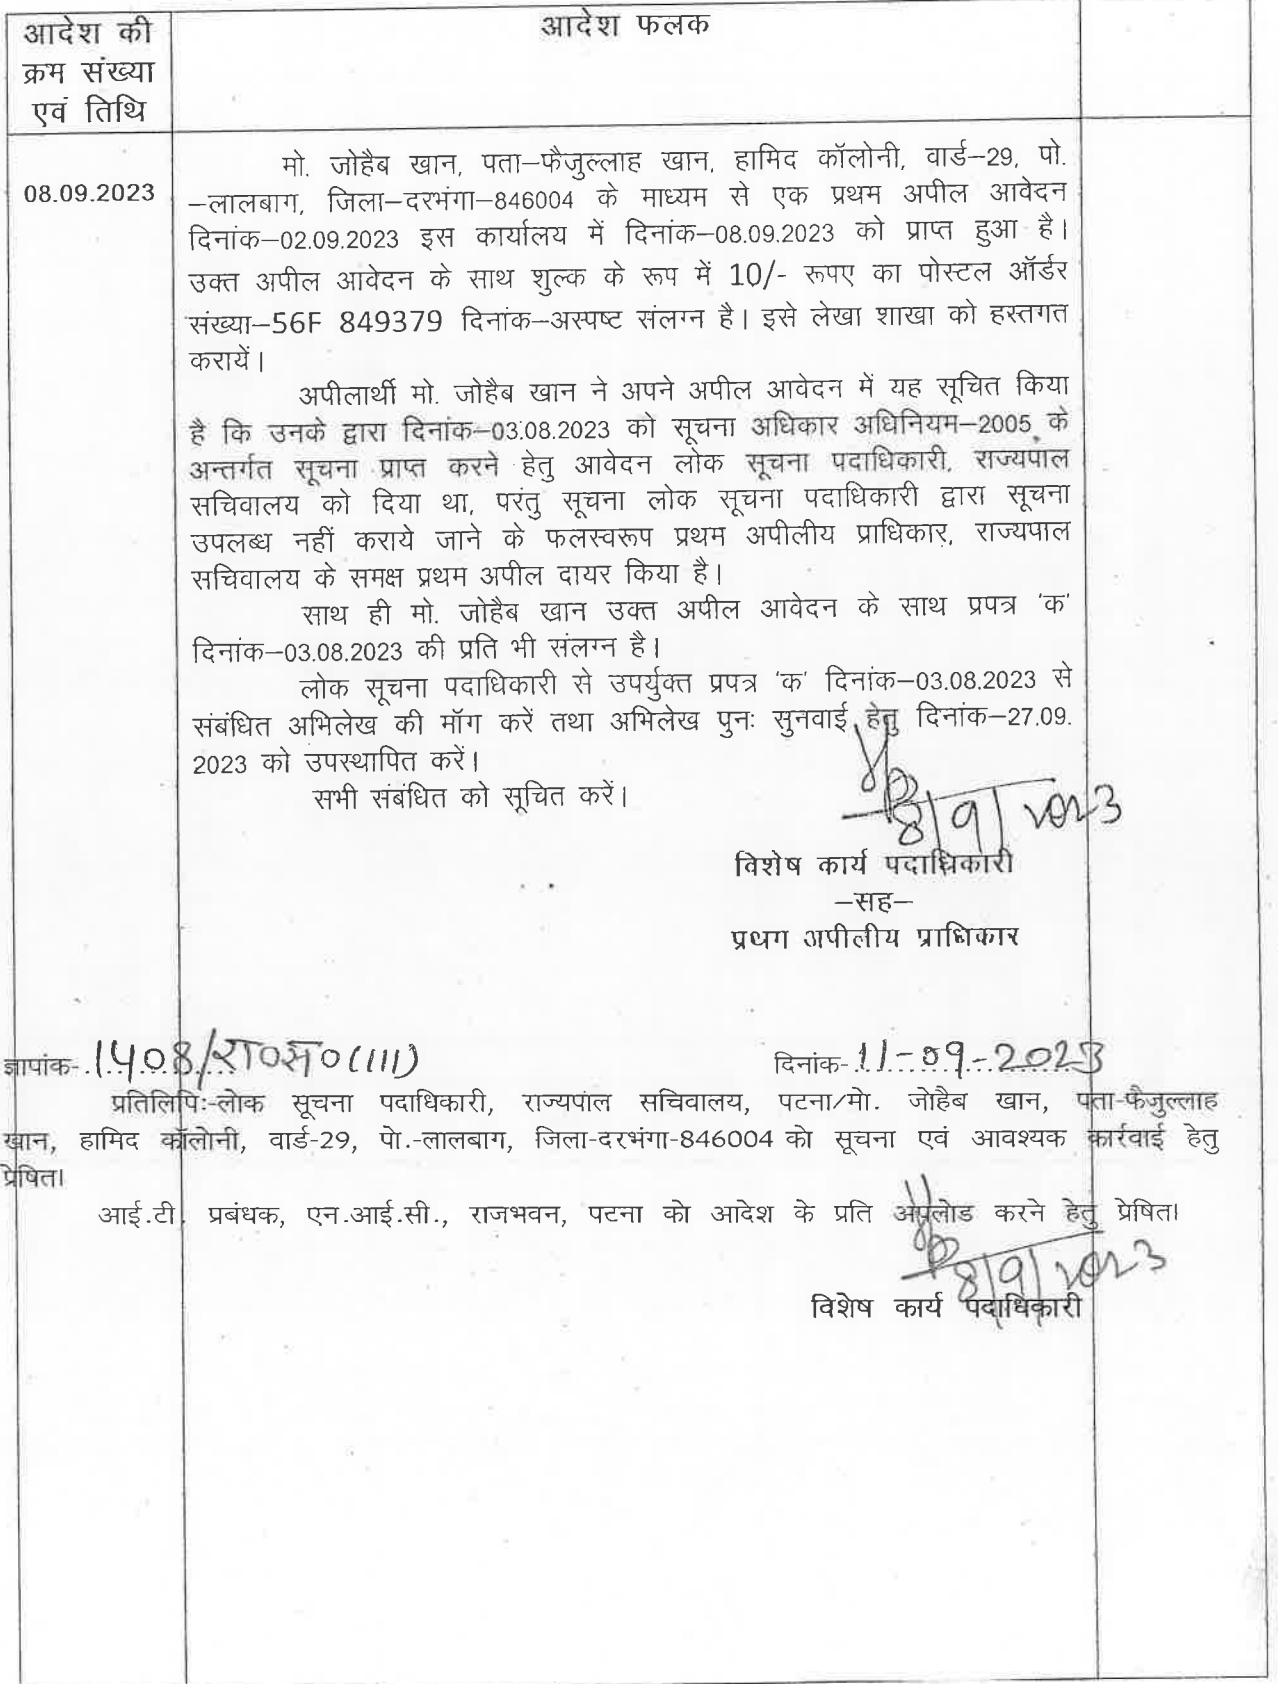 आदेश की
क्रम संख्या
एवं तिथि
आदेश फलक
08.09.2023
मो. जोहैब खान, पता–फैजुल्लाह खान, हामिद कॉलोनी, वार्ड–29, पो.
–लालबाग, जिला–दरभंगा–846004 के माध्यम से एक प्रथम अपील आवेदन
दिनांक–02.09.2023 इस कार्यालय में दिनांक–08.09.2023 को प्राप्त हुआ है।
उक्त अपील आवेदन के साथ शुल्क के रूप में 10/- रूपए का पोस्टल ऑर्डर
संख्या–56F 849379 दिनांक–अस्पष्ट संलग्न है। इसे लेखा शाखा को हस्तगत
करायें।
अपीलार्थी मो. जोहैब खान ने अपने अपील आवेदन में यह सूचित किया
है कि उनके द्वारा दिनांक–03.08.2023 को सूचना अधिकार अधिनियम–2005 के
अन्तर्गत सूचना प्राप्त करने हेतु आवेदन लोक सूचना पदाधिकारी, राज्यपाल
सचिवालय को दिया था, परंतु सूचना लोक सूचना पदाधिकारी द्वारा सूचना
उपलब्ध नहीं कराये जाने के फलस्वरूप प्रथम अपीलीय प्राधिकार, राज्यपाल
सचिवालय के समक्ष प्रथम अपील दायर किया है।
साथ ही मो. जोहैब खान उक्त अपील आवेदन के साथ प्रपत्र 'क'
दिनांक–03.08.2023 की प्रति भी संलग्न है।
लोक सूचना पदाधिकारी से उपर्युक्त प्रपत्र 'क' दिनांक–03.08.2023 से
संबंधित अभिलेख की मॉग करें तथा अभिलेख पुनः सुनवाई हेतु दिनांक–27.09.
2023 को उपस्थापित करें।
सभी संबंधित को सूचित करें।
8/9/2023
विशेष कार्य पदाधिकारी
–सह–
प्रथम अपीलीय प्राधिकार
ज्ञापांक- 1408/रा०स०(III) दिनांक- 11-09-2023
प्रतिलिपिः-लोक सूचना पदाधिकारी, राज्यपाल सचिवालय, पटना/मो. जोहैब खान, पता-फैजुल्लाह
खान, हामिद कॉलोनी, वार्ड-29, पो.-लालबाग, जिला-दरभंगा-846004 को सूचना एवं आवश्यक कार्रवाई हेतु
प्रेषित।
आई.टी. प्रबंधक, एन.आई.सी., राजभवन, पटना को आदेश के प्रति अपलोड करने हेतु प्रेषित।
8/9/2023
विशेष कार्य पदाधिकारी